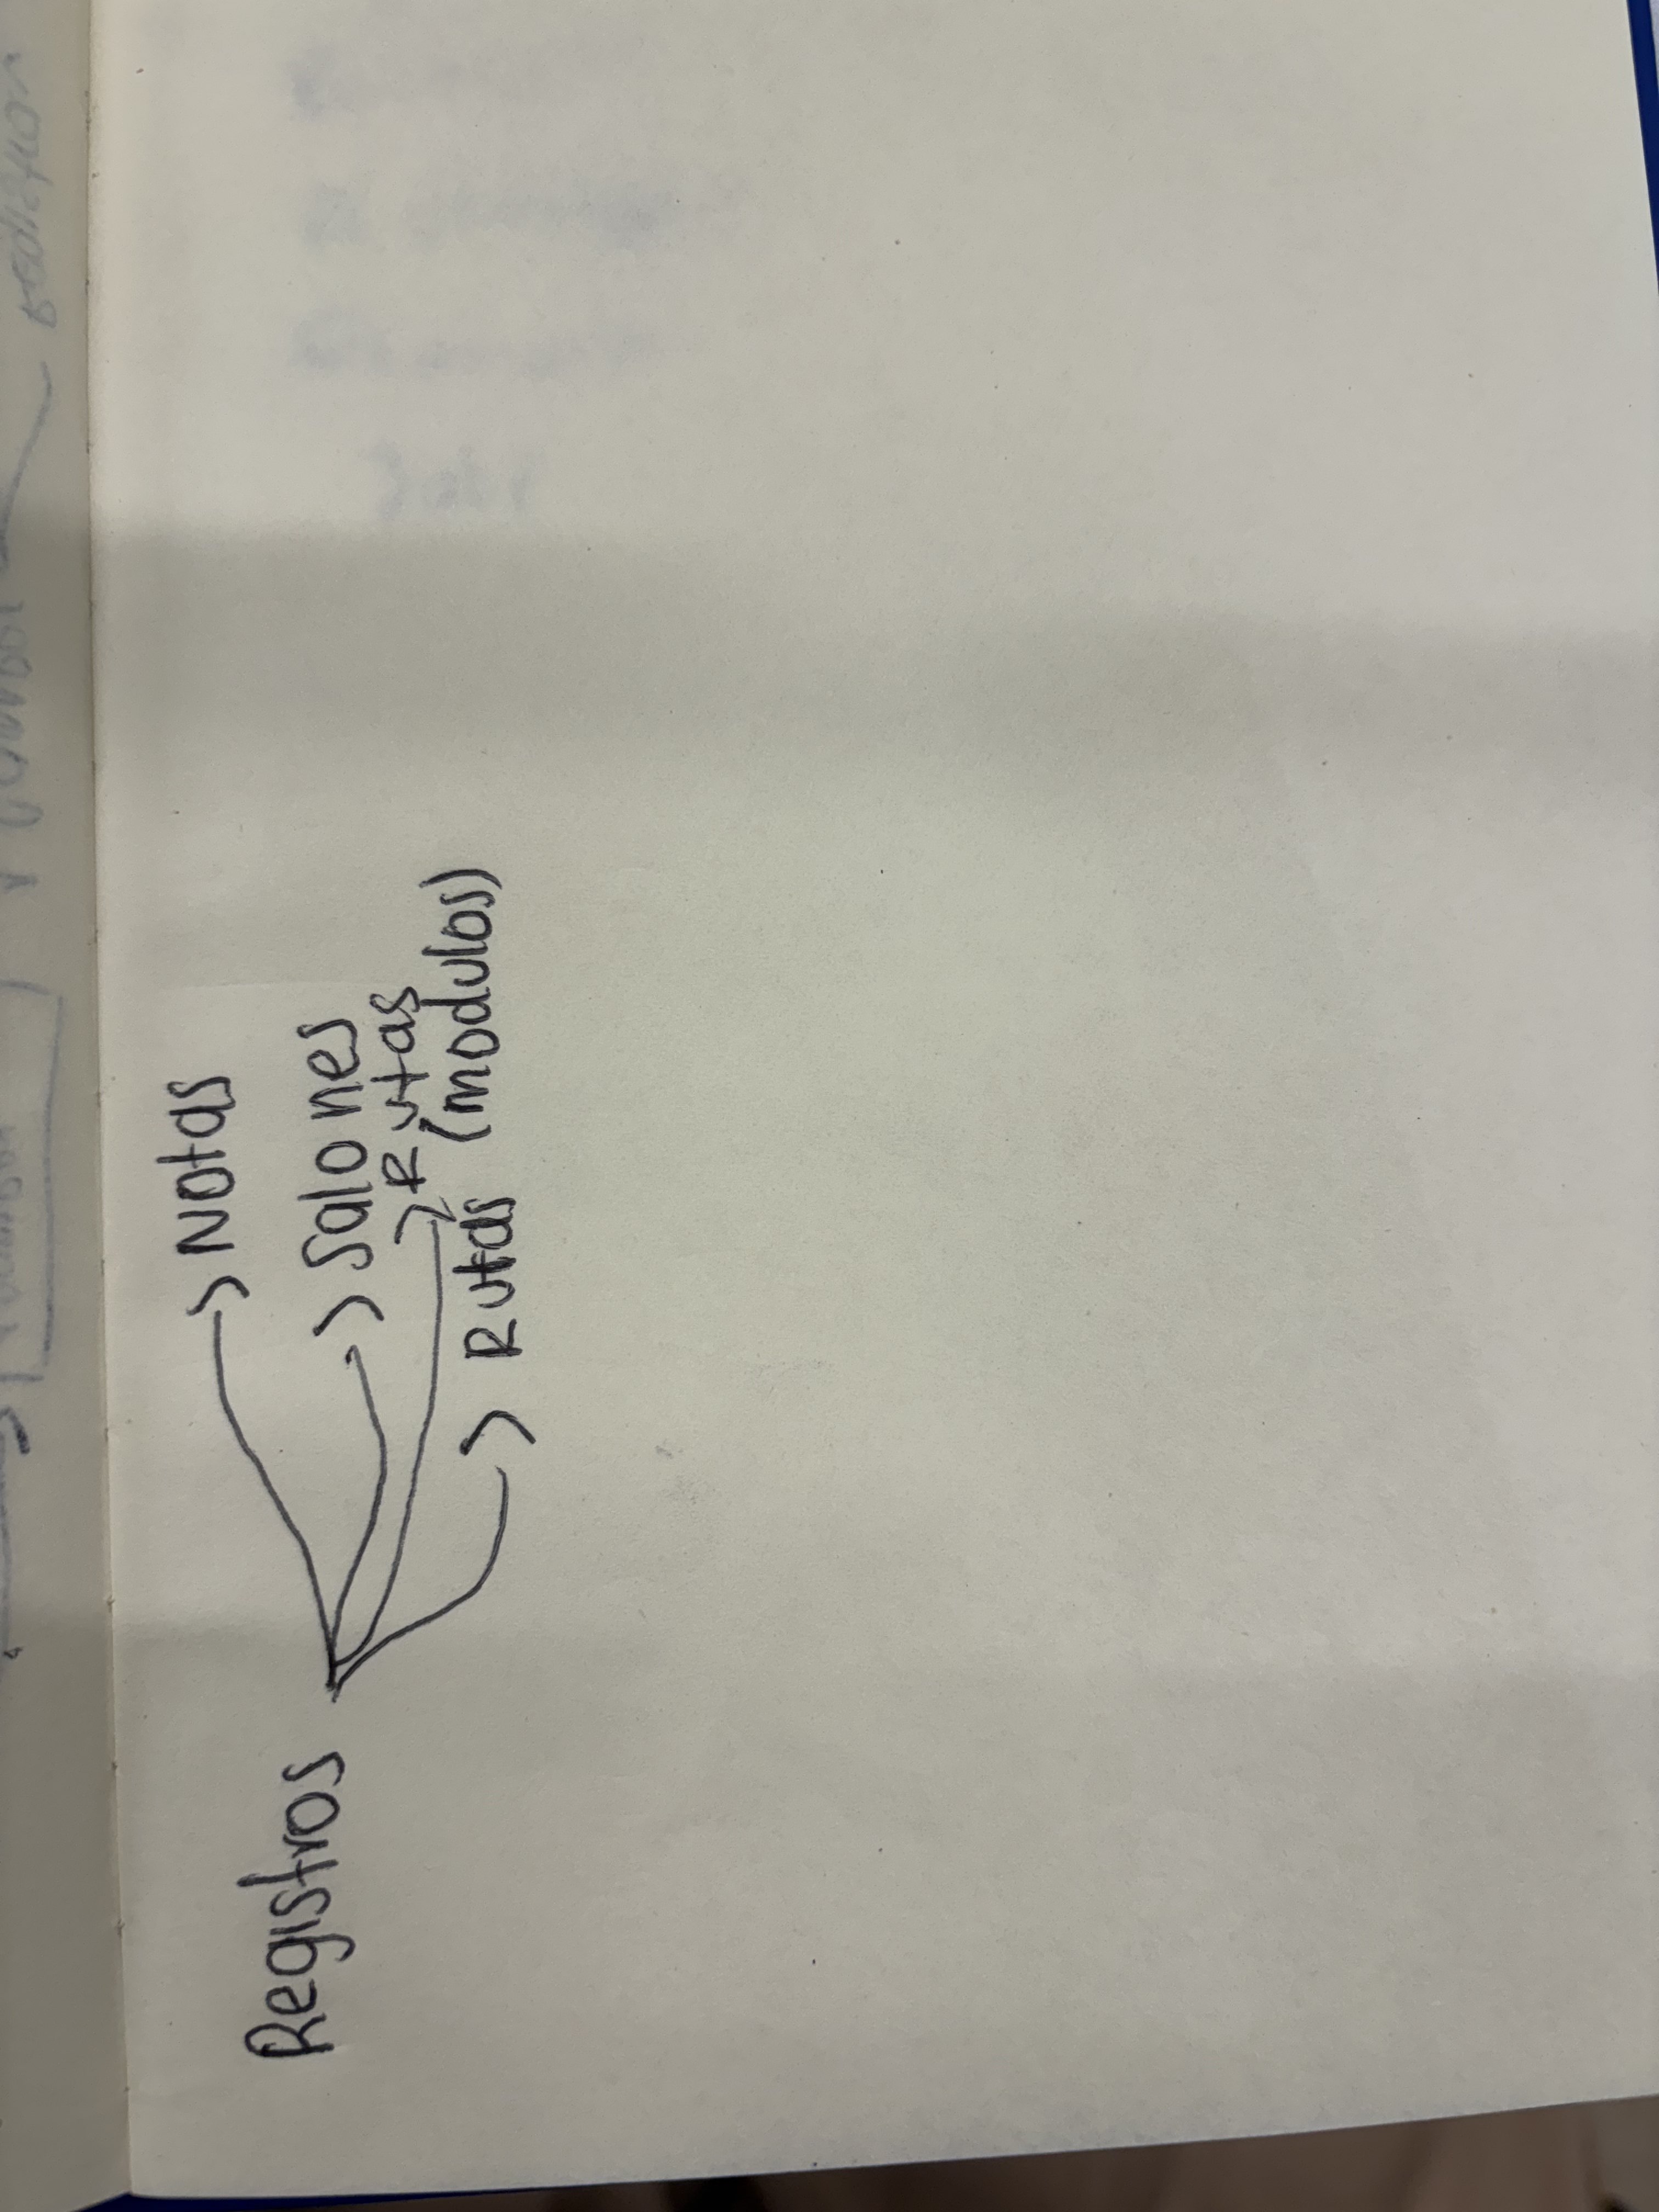 Registros
> Notas
> Salones
> Rutas
> Rutas (modulos)